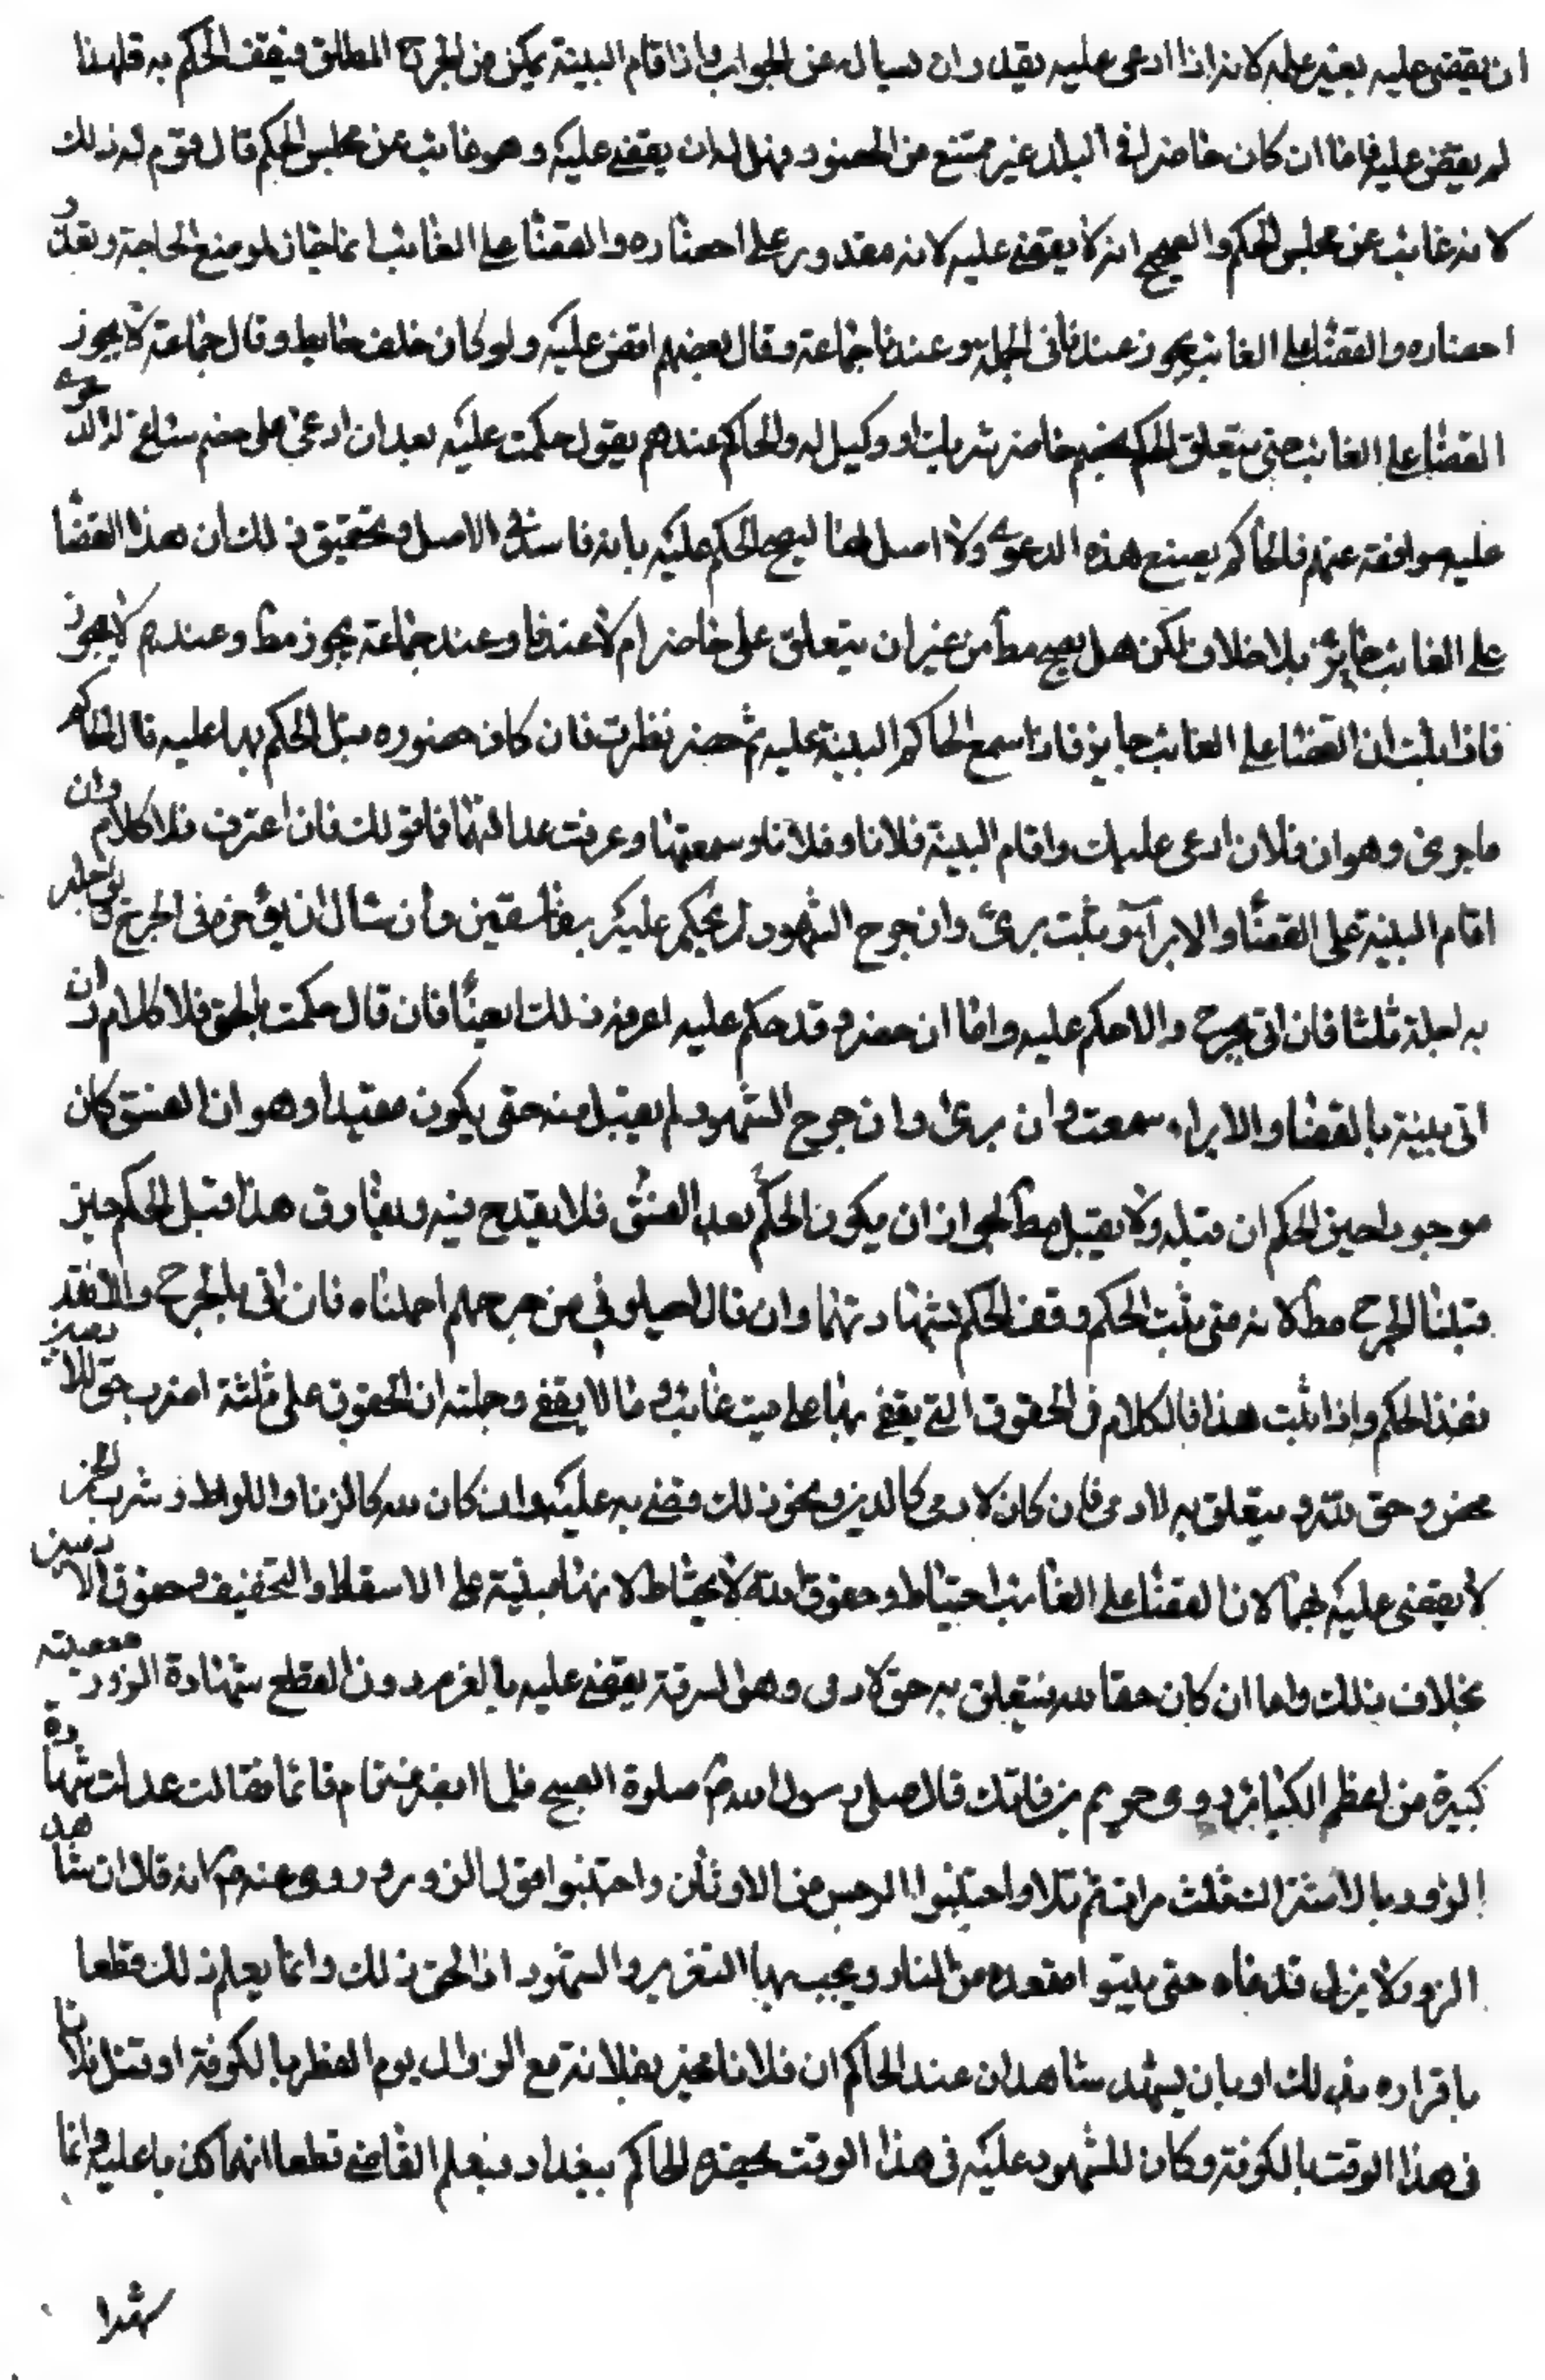 ان يقضى عليه بغير علمه لانه اذا ادعى عليه يقدر ان يسال له عن الجواب واذا قام البينة يمكن من الجرح المطلق فيقف الحكم به فلهذا
لم يقض عليه فاما ان كان حاضرا في البلد غير ممتنع من الحضور فهل له ان يقضي عليه وهو غائب عن مجلس الحكم قال قوم له ذلك
لانه غائب عن مجلس الحكم والصحيح انه لا يقضي عليه لانه مقدور على احضاره والقضا على الغائب انما جاز لموضع الحاجة وتعذر
احضاره والقضا على الغائب يجوز عندنا في الجملة وعند جماعة وقال بعضهم اقض عليه ولو كان خلف حايط وقال جماعة لا يجوز
القضا على الغائب حتى يتعلق الحكم بخصم حاضر شريك او وكيل له والحاكم عندهم يقول حكمت عليه بعد ان ادعى على خصم ساغ له الدعوى
عليه موافقة عنهم فالحاكم يصنع هذه الدعوى ولا اصل لها ليصح الحكم عليه بانه فاسد في الاصل وتحقيق ذلك أن هذا القضا
على الغائب جايز بلا خلاف لكن هل يصح مط من غير ان يتعلق على حاضر ام لا عندنا وعند جماعة يجوز مط وعندهم لا يجوز
فاذا ثبت ان القضا على الغائب جايز فاذا سمع الحاكم البينة عليه ثم حضر نظرت فان كان حضوره قبل الحكم بها عليه قال الحاكم
ما جرى وهو ان فلان ادعى عليك واقام البينة فلانا وفلانا وسمعتها وعرفت عدالتهما فما قولك فان اعترف فلا كلام وان
اقام البينة على القضا والابرآء ثبت برئ وان جرح الشهود لم يحكم عليه بفاسقين وأن سال ان يؤخر في الجرح يؤجله
به اجله ثلثا فان اتى بجرح والا حكم عليه واما ان حضر وقد حكم عليه اعرفه ذلك ايضا فان قال حكمت بالحق فلا كلام وان
اتى ببينة بالقضا والابراء سمعت وان برئ وان جرح الشهود لم يقبل منه حتى يكون مقيدا وهو ان الفسق كان
موجودا حين الحكم او قبله ولا يقبل مط لجواز ان يكون الحكم بعد الفسق فلا يقدح فيه ويفارق هذا قبل الحكم حين
قبلنا الجرح مط لانه متى ثبت الحكم وقف الحكم بشهادتهما وان قال اجلوني من جرحهم اجلناه فان اتى بالجرح والا فقد
نفذ الحكم واذا ثبت هذا فالكلام في الحقوق التي يقضي بها على ميت غائب وما لا يقضي وجملته ان الحقوق على ثلثة اضرب حق للادميين
محض وحق لله ويتعلق به لادمى فان كان لادمى كالدين ونحو ذلك قضي به عليه وان كان لله كالزنا واللواط وشرب الخمر
لا يقضى عليه بها لان القضا على الغائب احتياط وحقوق الله لا يحتاط لانها مبنية على الاسقاط والتخفيف وحقوق الادميين
بخلاف ذلك واما ان كان حقا لله يتعلق به حق لادمى وهو السرقة يقضي عليه بالغرم دون القطع شهادة الزور معصية
كبيرة من اعظم الكبائر روى خريم بن فاتك قال صلى رسول الله ص صلوة الصبح فلما انصرف قام قائما فقال عدلت شهادة
الزور بالاشراك ثلث مرات ثم تلا واجتنبوا الرجس من الاوثان واجتنبوا قول الزور وروى عنه ص انه قال ان شاهد
الزور لا يزول قدماه حتى يتبوا مقعده من النار ويجب بها التعزير والشهود اذا لحق ذلك وانما يعلم ذلك قطعا
باقراره بذلك او بان يشهد شاهدان عند الحاكم ان فلانا بفلانة مع الزوال يوم الفطر بالكوفة او قتل فلانا
في هذا الوقت بالكوفة وكان للشهود عليه في هذا الوقت بحضرة الحاكم ببغداد فيعلم القاضي قطعا انهما كذبا عليه وانما
شهدا